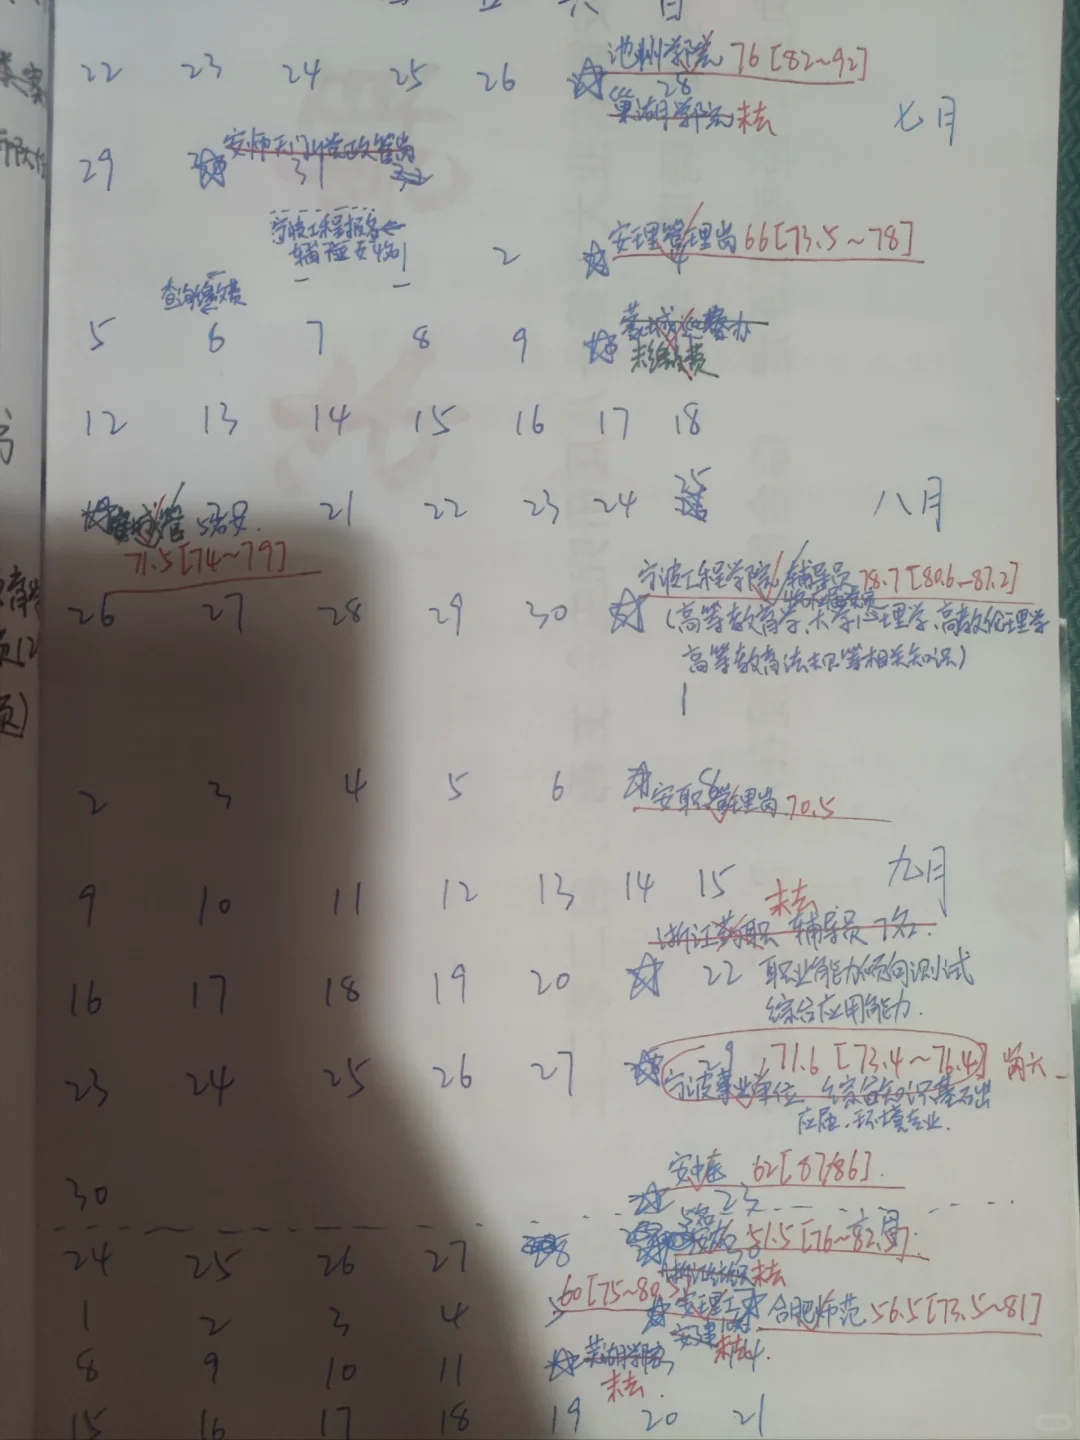 五 六 日
22 23 24 25 26 池州学院 76 [82~92]
28
巢湖学院 未去
七月
29 31
宁波工程报名
2 安理管理岗 66 [73.5~78]
4
查询缴费
5 6 7 8 9
未缴费
12 13 14 15 16 17 18
21 22 23 24 25
八月
71.5 [74~79]
宁波工程学院 辅导员 78.7 [80.6~87.2]
26 27 28 29 30 (高等教育学、大学心理学、高教伦理学
高等教育法规等相关知识)
1
2 3 4 5 6 安职管理岗 70.5
8
九月
9 10 11 12 13 14 15
未去
浙江药职 辅导员 7名.
16 17 18 19 20 22 职业能力倾向测试
综合应用能力.
23 24 25 26 27 29 71.6 [73.4~76.4] 岗六
宁波事业单位 综合知识基础
应届.环境专业.
62 [87/86].
30 23
24 25 26 27 51.5
未去
60
1 2 3 4 安理工 合肥师范 56.5 [73.5~81]
8 9 10 11 芜湖学院 未去
未去.
15 16 17 18 19 20 21